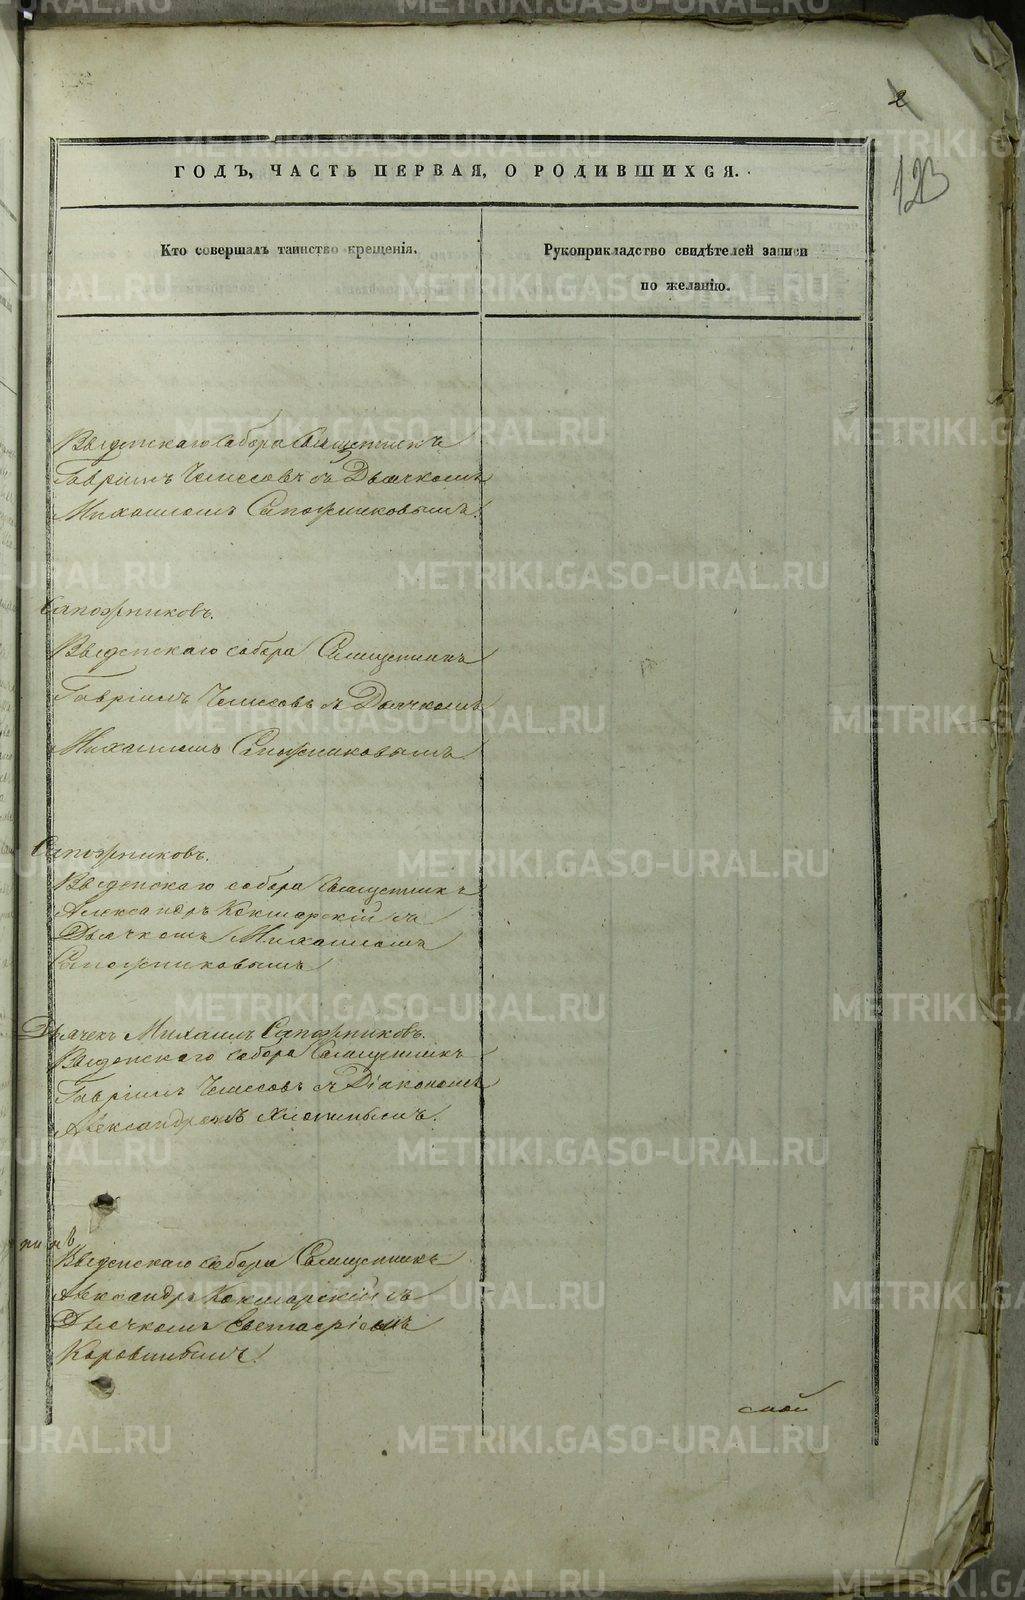 2
123
ГОДЪ, ЧАСТЬ ПЕРВАЯ, О РОДИВШИХСЯ.
Кто совершалъ таинство крещенія.
Рукоприкладство свидѣтелей записи
по желанію.
Введенскаго собора Священникъ
Гавріилъ Чемесовъ съ Дьячкомъ
Михаиломъ Сапожниковымъ.
Сапожниковъ.
Введенскаго собора Священникъ
Гавріилъ Чемесовъ съ Дьячкомъ
Михаиломъ Сапожниковымъ.
Сапожниковъ.
Введенскаго собора Священникъ
Александръ Кокшарскій съ
Дьячкомъ Михаиломъ
Сапожниковымъ
Дьячекъ Михаилъ Сапожниковъ.
Введенскаго собора Священникъ
Гавріилъ Чемесовъ съ Діакономъ
Александромъ
Введенскаго собора Священникъ
Александръ Кокшарскій съ
Дьячкомъ
Коровинымъ.
METRIKI.GASO-URAL.RU